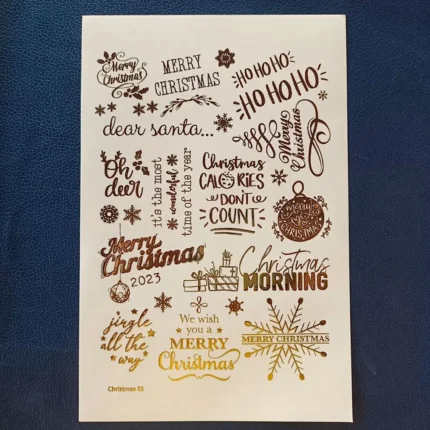 Merry
Christmas
MERRY
CHRISTMAS
HO HO HO
HO HO HO
dear santa...
Merry
Christmas
Oh
deer
it's the most
wonderful
time of the year
Christmas
CALORIES
DON'T
COUNT
Merry
CHRISTMAS
Merry
Christmas
2023
Christmas
MORNING
jingle
all the
way
We wish
you a
MERRY
Christmas
MERRY CHRISTMAS
Christmas 03